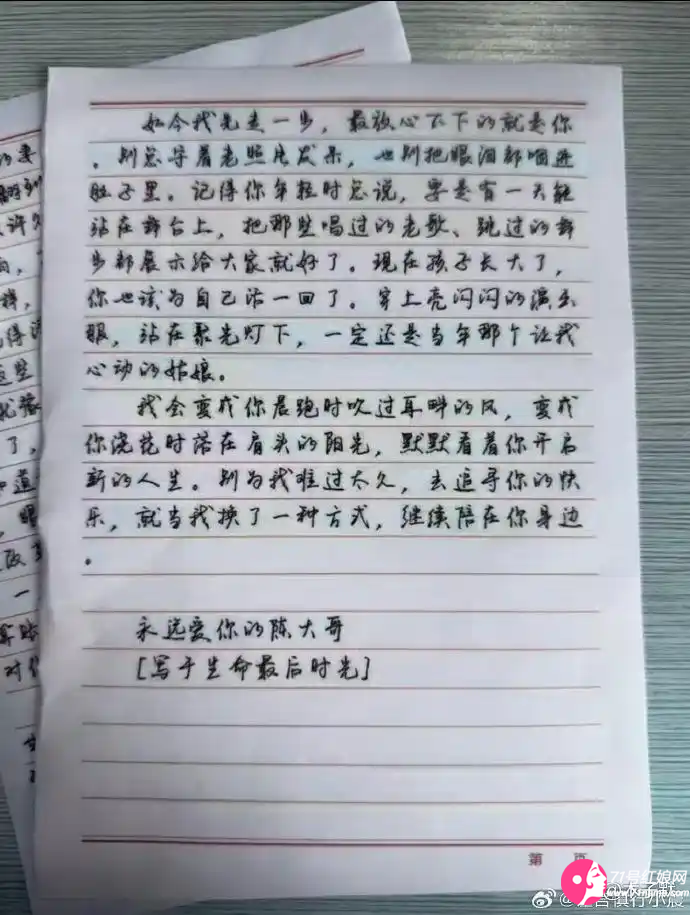 如今我先走一步，最放心不下的就是你
。别总守着老照片发呆，也别把眼泪都咽进
肚子里。记得你年轻时总说，要是有一天能
站在舞台上，把那些唱过的老歌、跳过的舞
步都展示给大家就好了。现在孩子长大了，
你也该为自己活一回了。穿上亮闪闪的演出
服，站在聚光灯下，一定还是当年那个让我
心动的姑娘。
我会变成你晨跑时吹过耳畔的风，变成
你浇花时落在肩头的阳光，默默看着你开启
新的人生。别为我难过太久，去追寻你的快
乐，就当我换了一种方式，继续陪在你身边
。
永远爱你的陈大哥
[写于生命最后时光]
第 页
77号红娘网
www.77hn.com